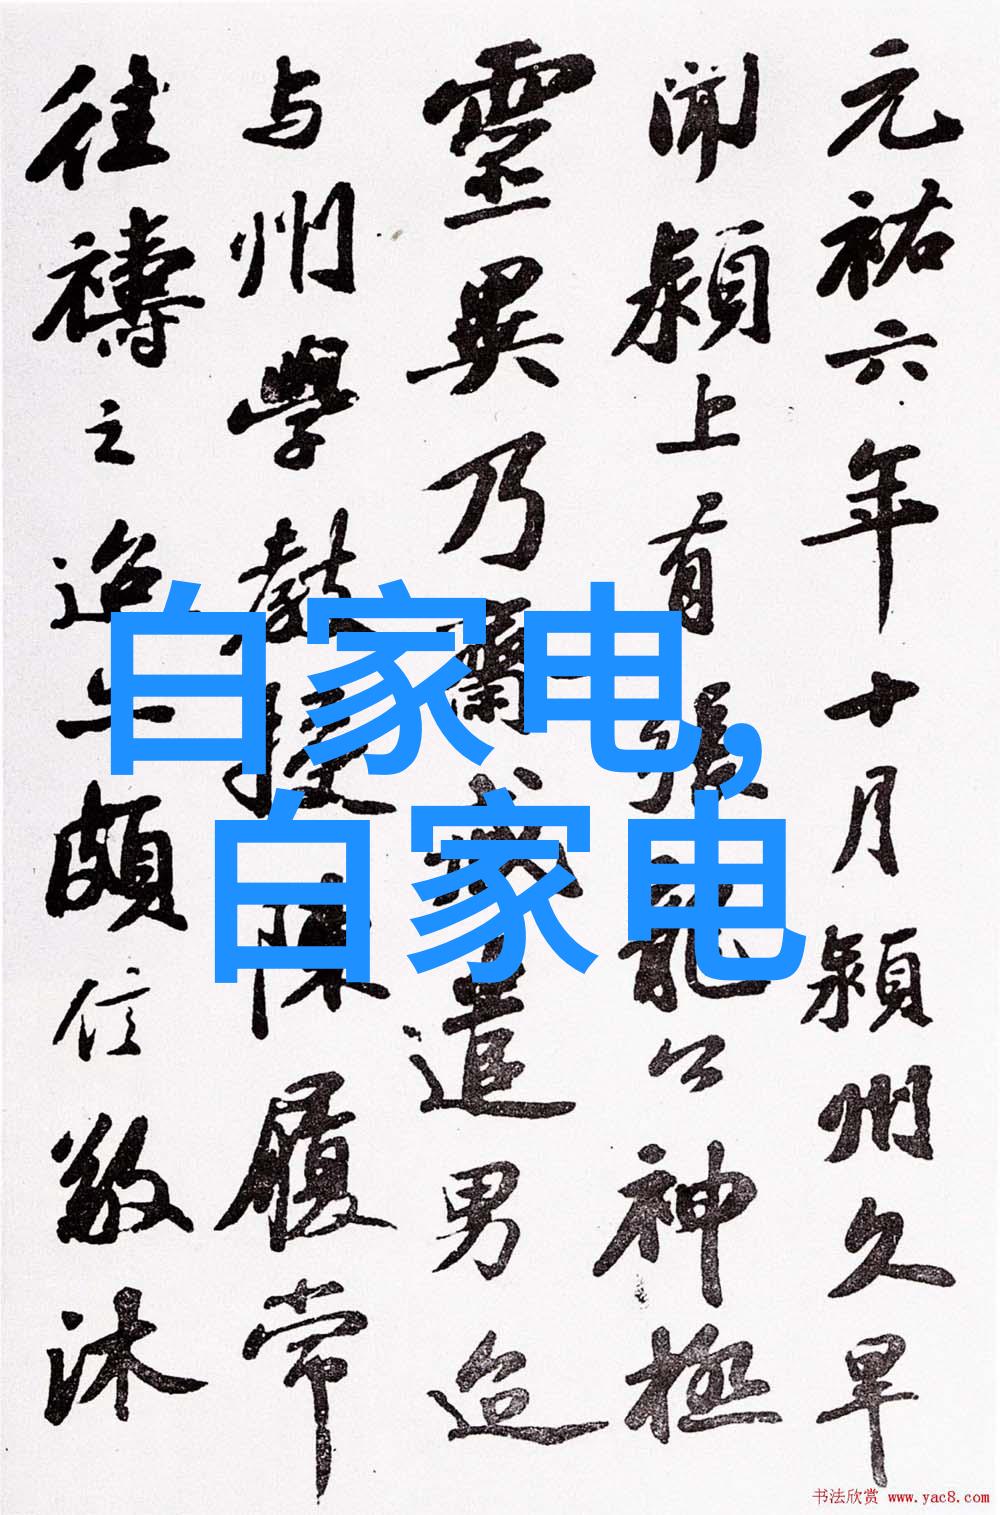 元祐六年十月潁州久旱
聞潁上有張龍公神極
靈異乃齋戒遣男迨
与州學教授陳履常
往禱之迨亦頗信敬沐
白家电,
白家电
书法欣赏 www.yac8.com